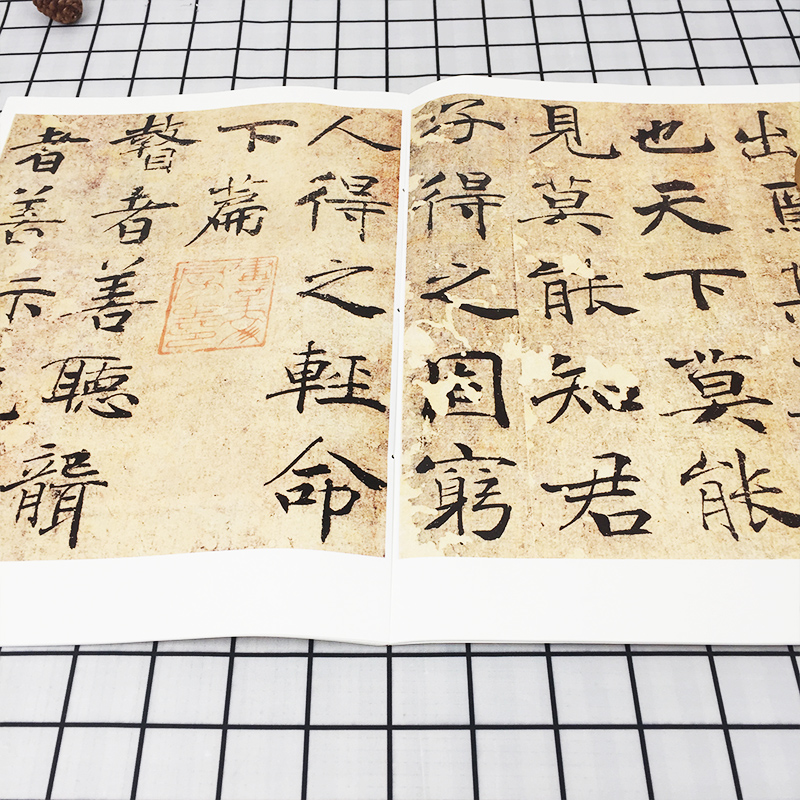 出焉
也天下莫能
見莫能知君
子得之固窮
人得之輕命
下篇
瞽者善聽聾
者善